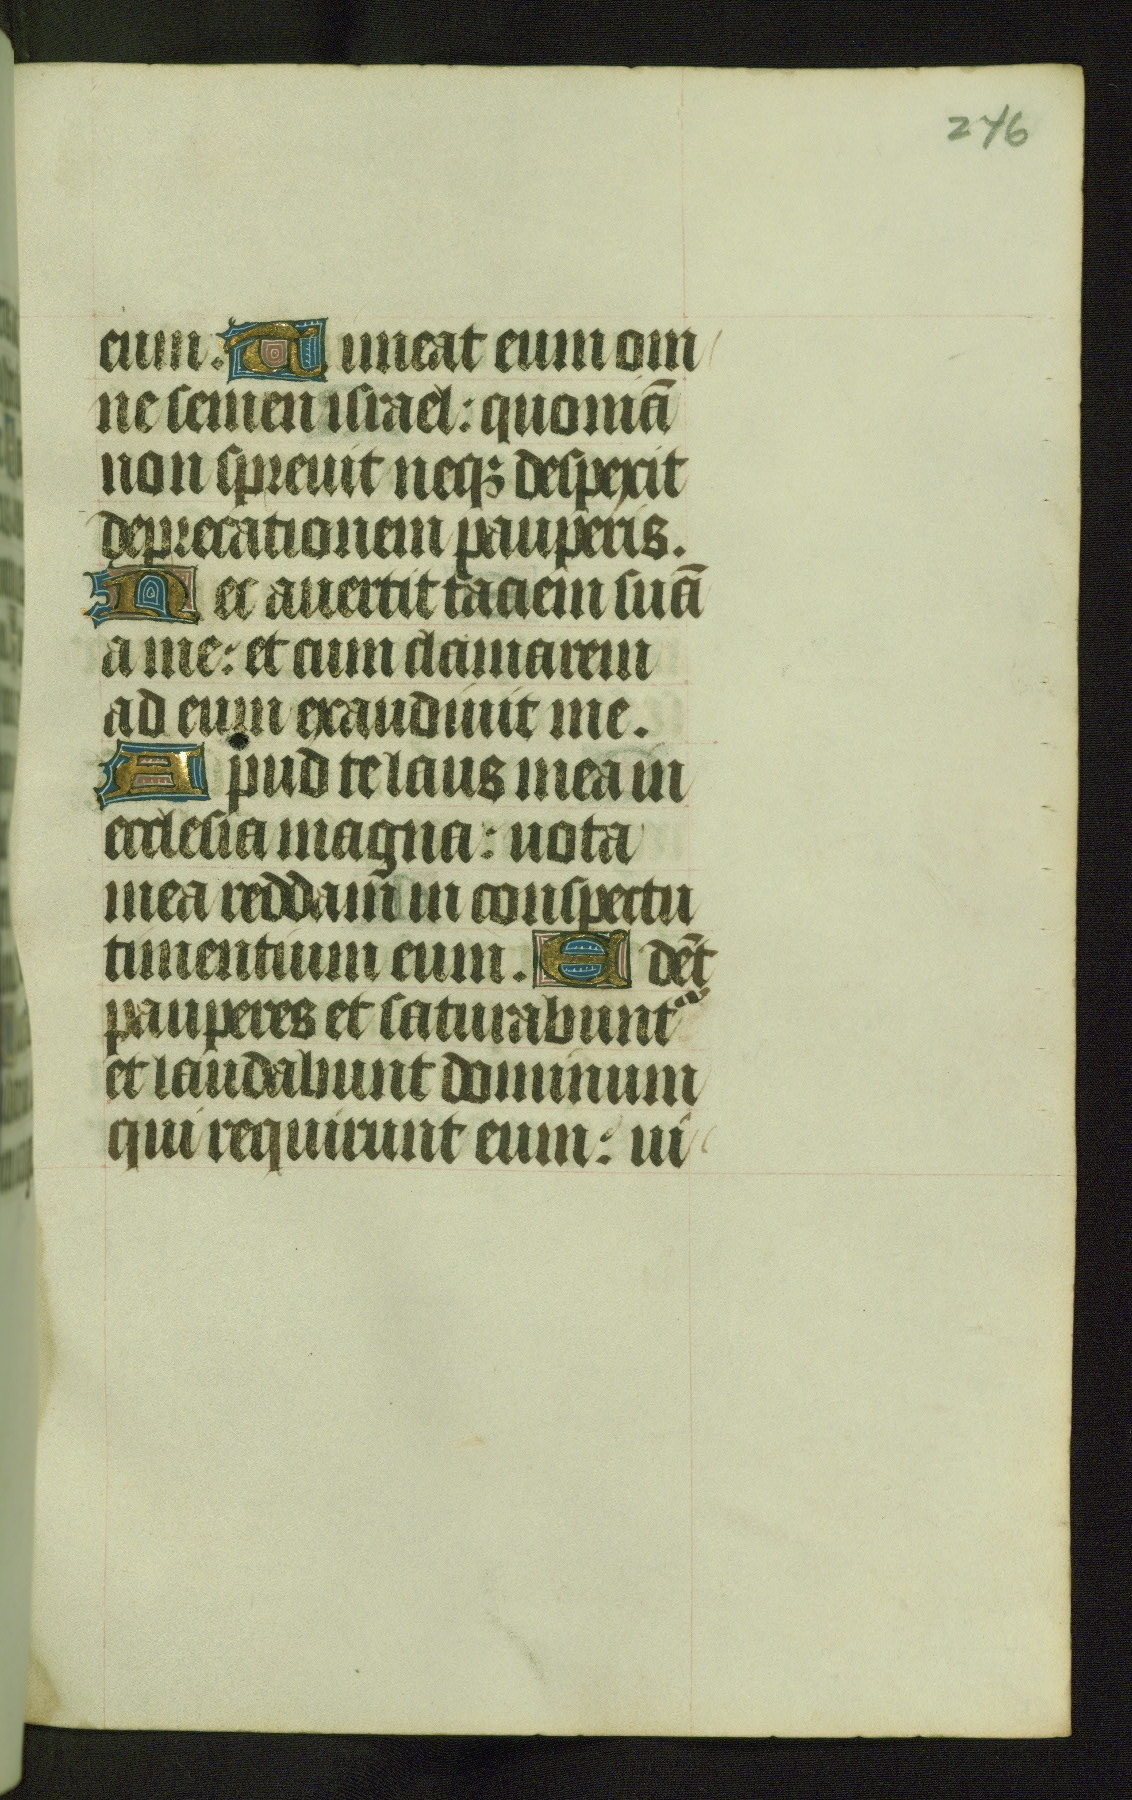 246
eum. T imeat eum om
ne semen israel: quoniā
non spreuit neqꝫ despexit
deprecationem pauperis.
N ec auertit faciem suā
a me: et cum clamarem
ad eum exaudiuit me.
A pud te laus mea in
ecclesia magna: uota
mea reddam in conspectu
timentium eum. E dēt
pauperes et saturabunt᷑
et laudabunt dominum
qui requirunt eum: ui